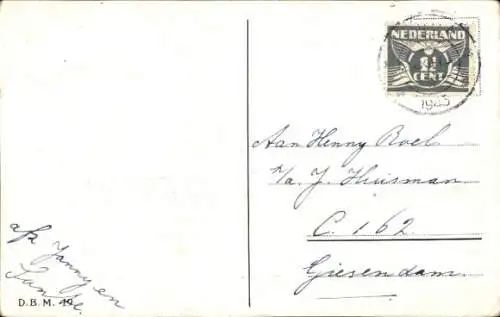 NEDERLAND
1½
CENT
1935
Aan Henny Boel
p/a. J. Huisman
C. 162
Giesendam.
afz Janny en
D.B.M. 19